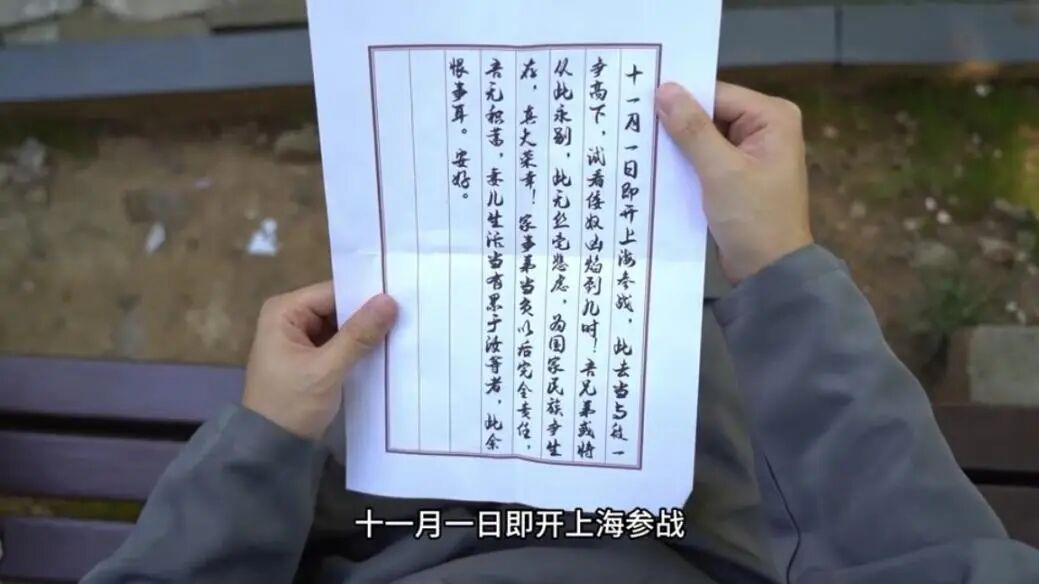 十一月一日即开上海参战，此去当与敌一
争高下，试看倭奴凶焰到几时！吾兄弟或将
从此永别，此无丝毫悲虑，为国家民族争生
存，真大荣幸！家事弟当负以后完全责任，
吾无积蓄，妻儿生活当有累于汝等者，此余
恨事耳。安好。
十一月一日即开上海参战